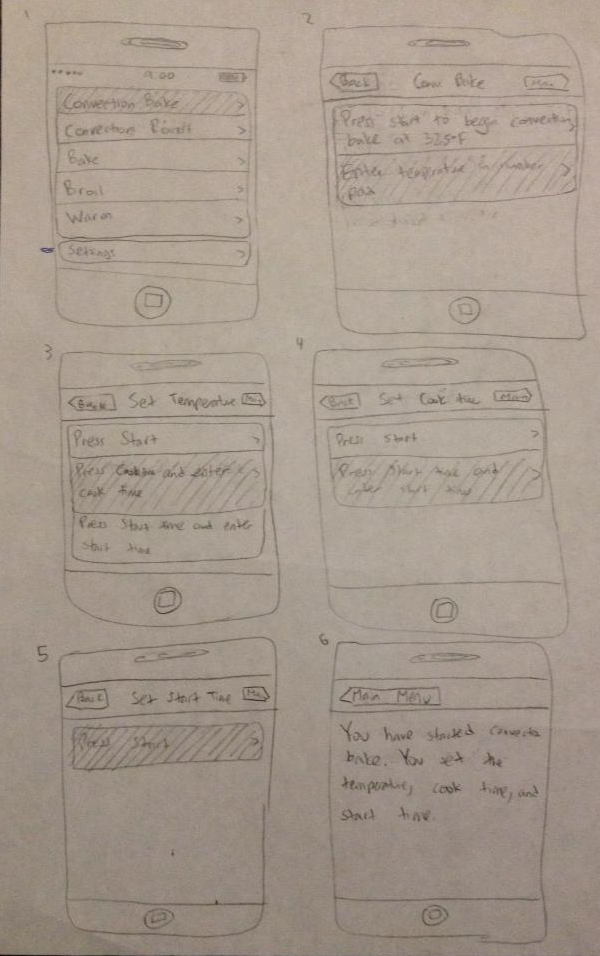 1
9:00
Convection Bake >
Convection Roast >
Bake >
Broil >
Warm >
Settings >
2
Back
Conv Bake
Main
Press start to begin convection
bake at 325°F
Enter temperature in number
pad
3
Back
Set Temperature
Main
Press Start >
Press Cooktime and enter
cook time
Press Start time and enter
start time
4
Back
Set Cook time
Main
Press start >
Press Start time and
enter start time
5
Back
Set Start Time
Main
Press Start >
6
Main Menu
You have started convection
bake. You set the
temperature, cook time, and
start time.